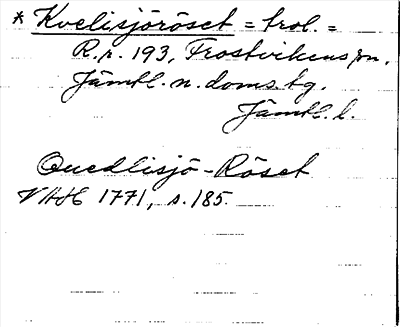 * Kvelisjöröset = trol. =
R.r. 193, Frostvikens sn,
Jämtl. n. doms. tg.
Jämtl. l.
Quedlisjö-Röset
VAH 1771, s. 185.